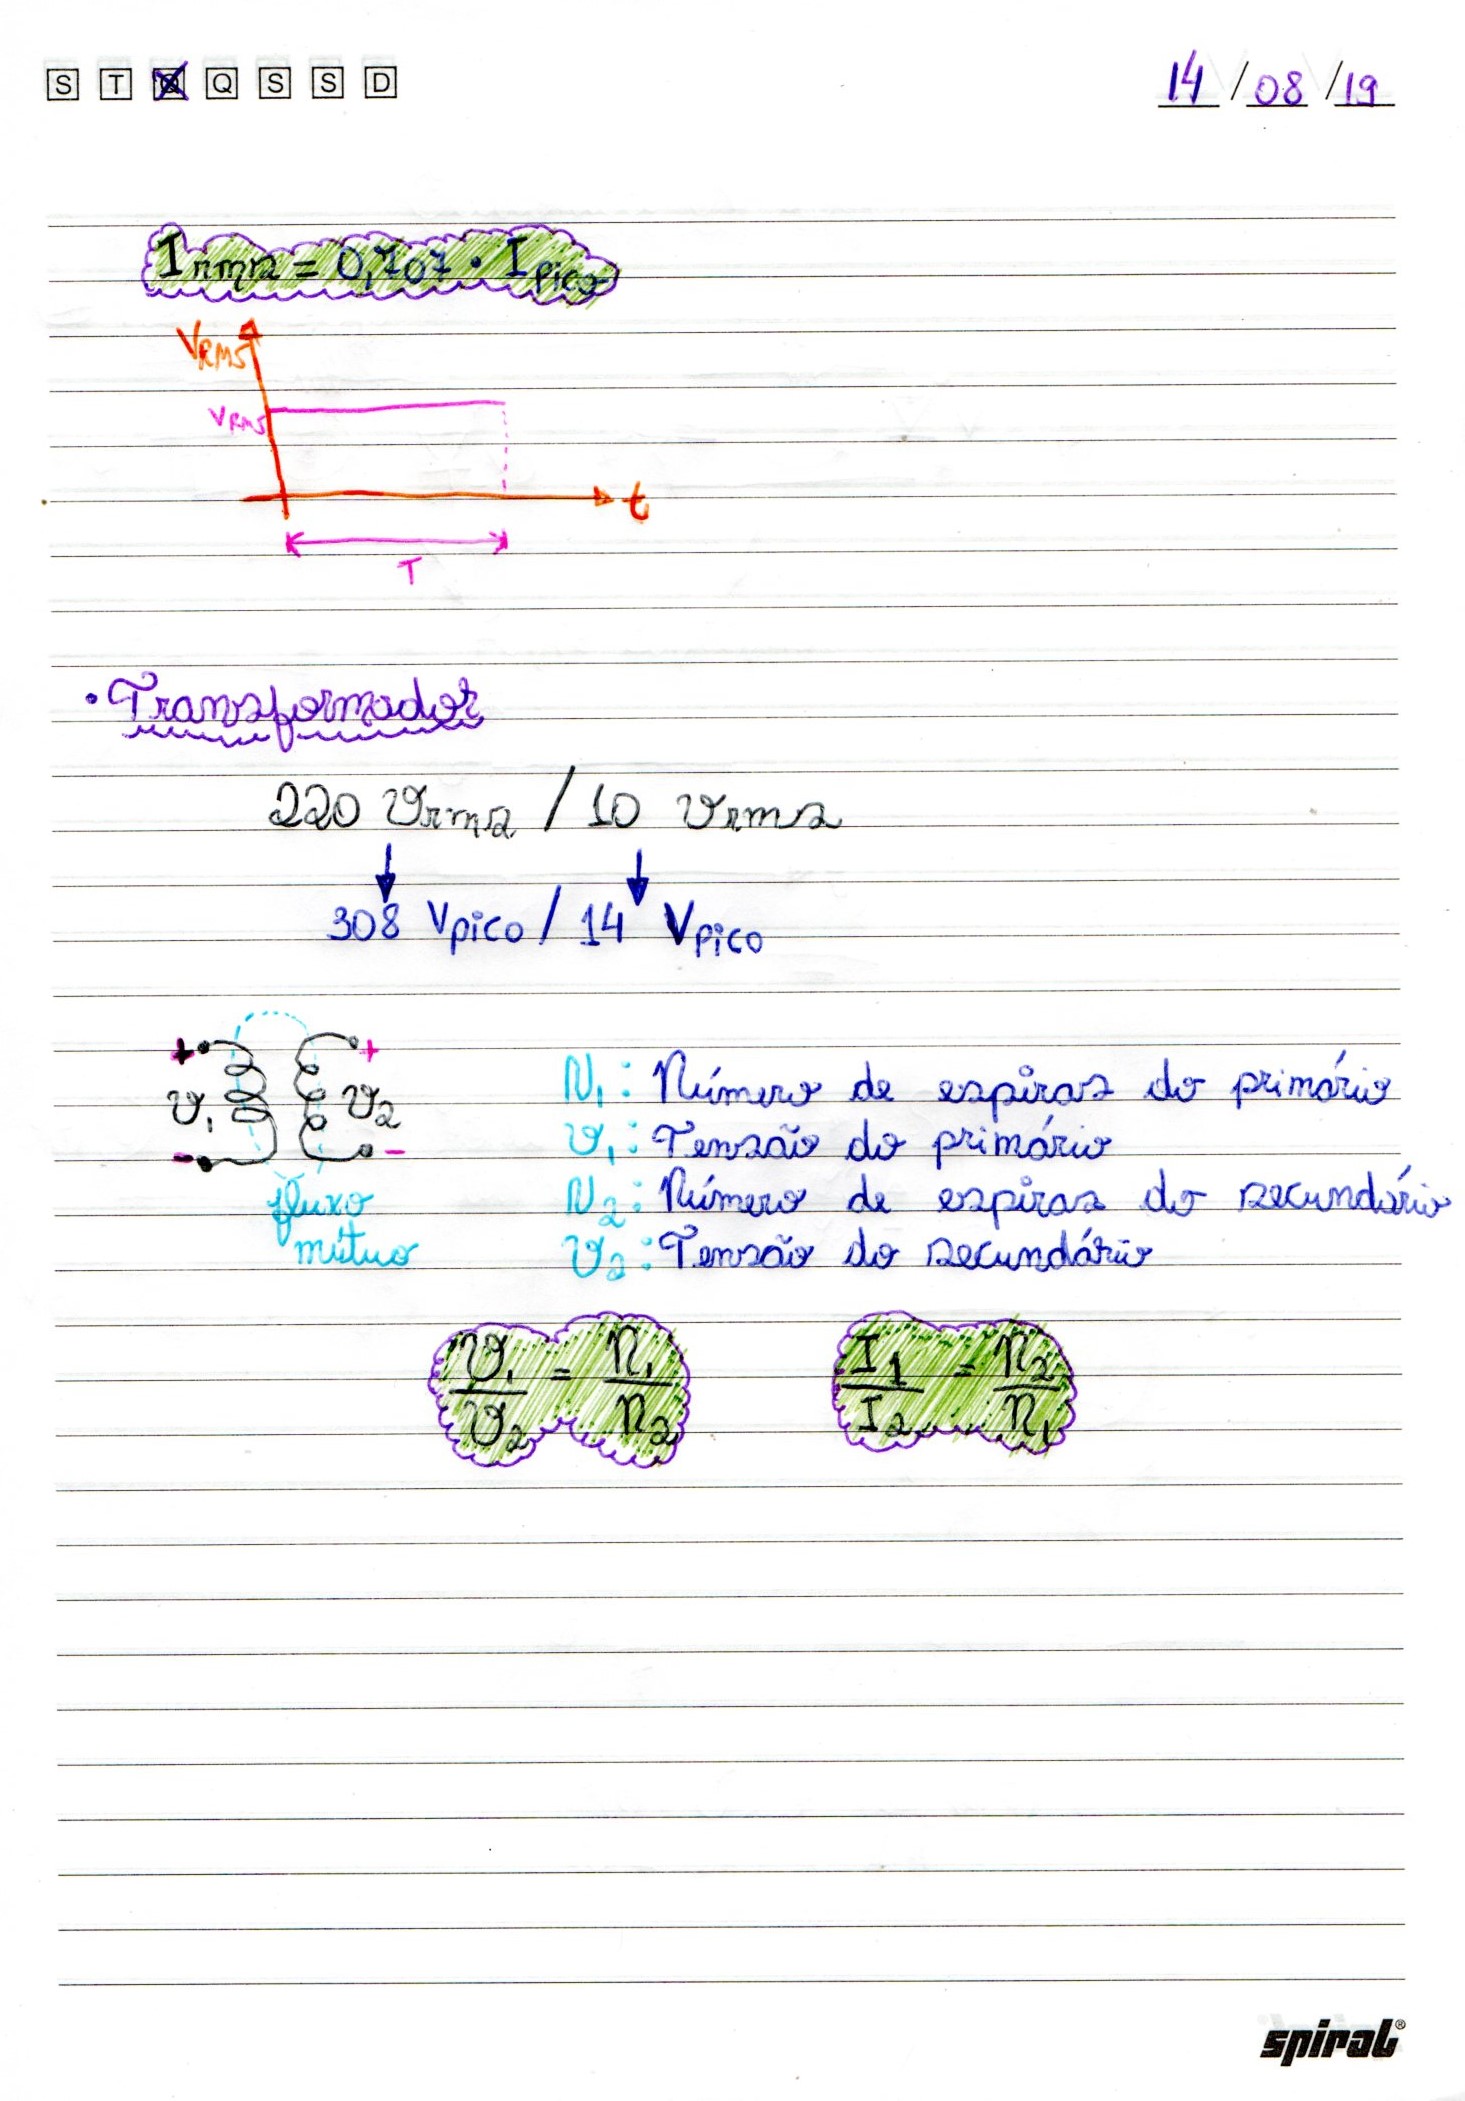 S T Q Q S S D
14 / 08 / 19
Irms = 0,707 · Ipico
VRMS
VRMS
t
T
• Transformador
220 Vrms / 10 Vrms
308 Vpico / 14 Vpico
+ +
V1 V2
- -
fluxo
mútuo
N1: Número de espiras do primário
V1: Tensão do primário
N2: Número de espiras do secundário
V2: Tensão do secundário
V1/V2 = N1/N2
I1/I2 = N2/N1
spiral®